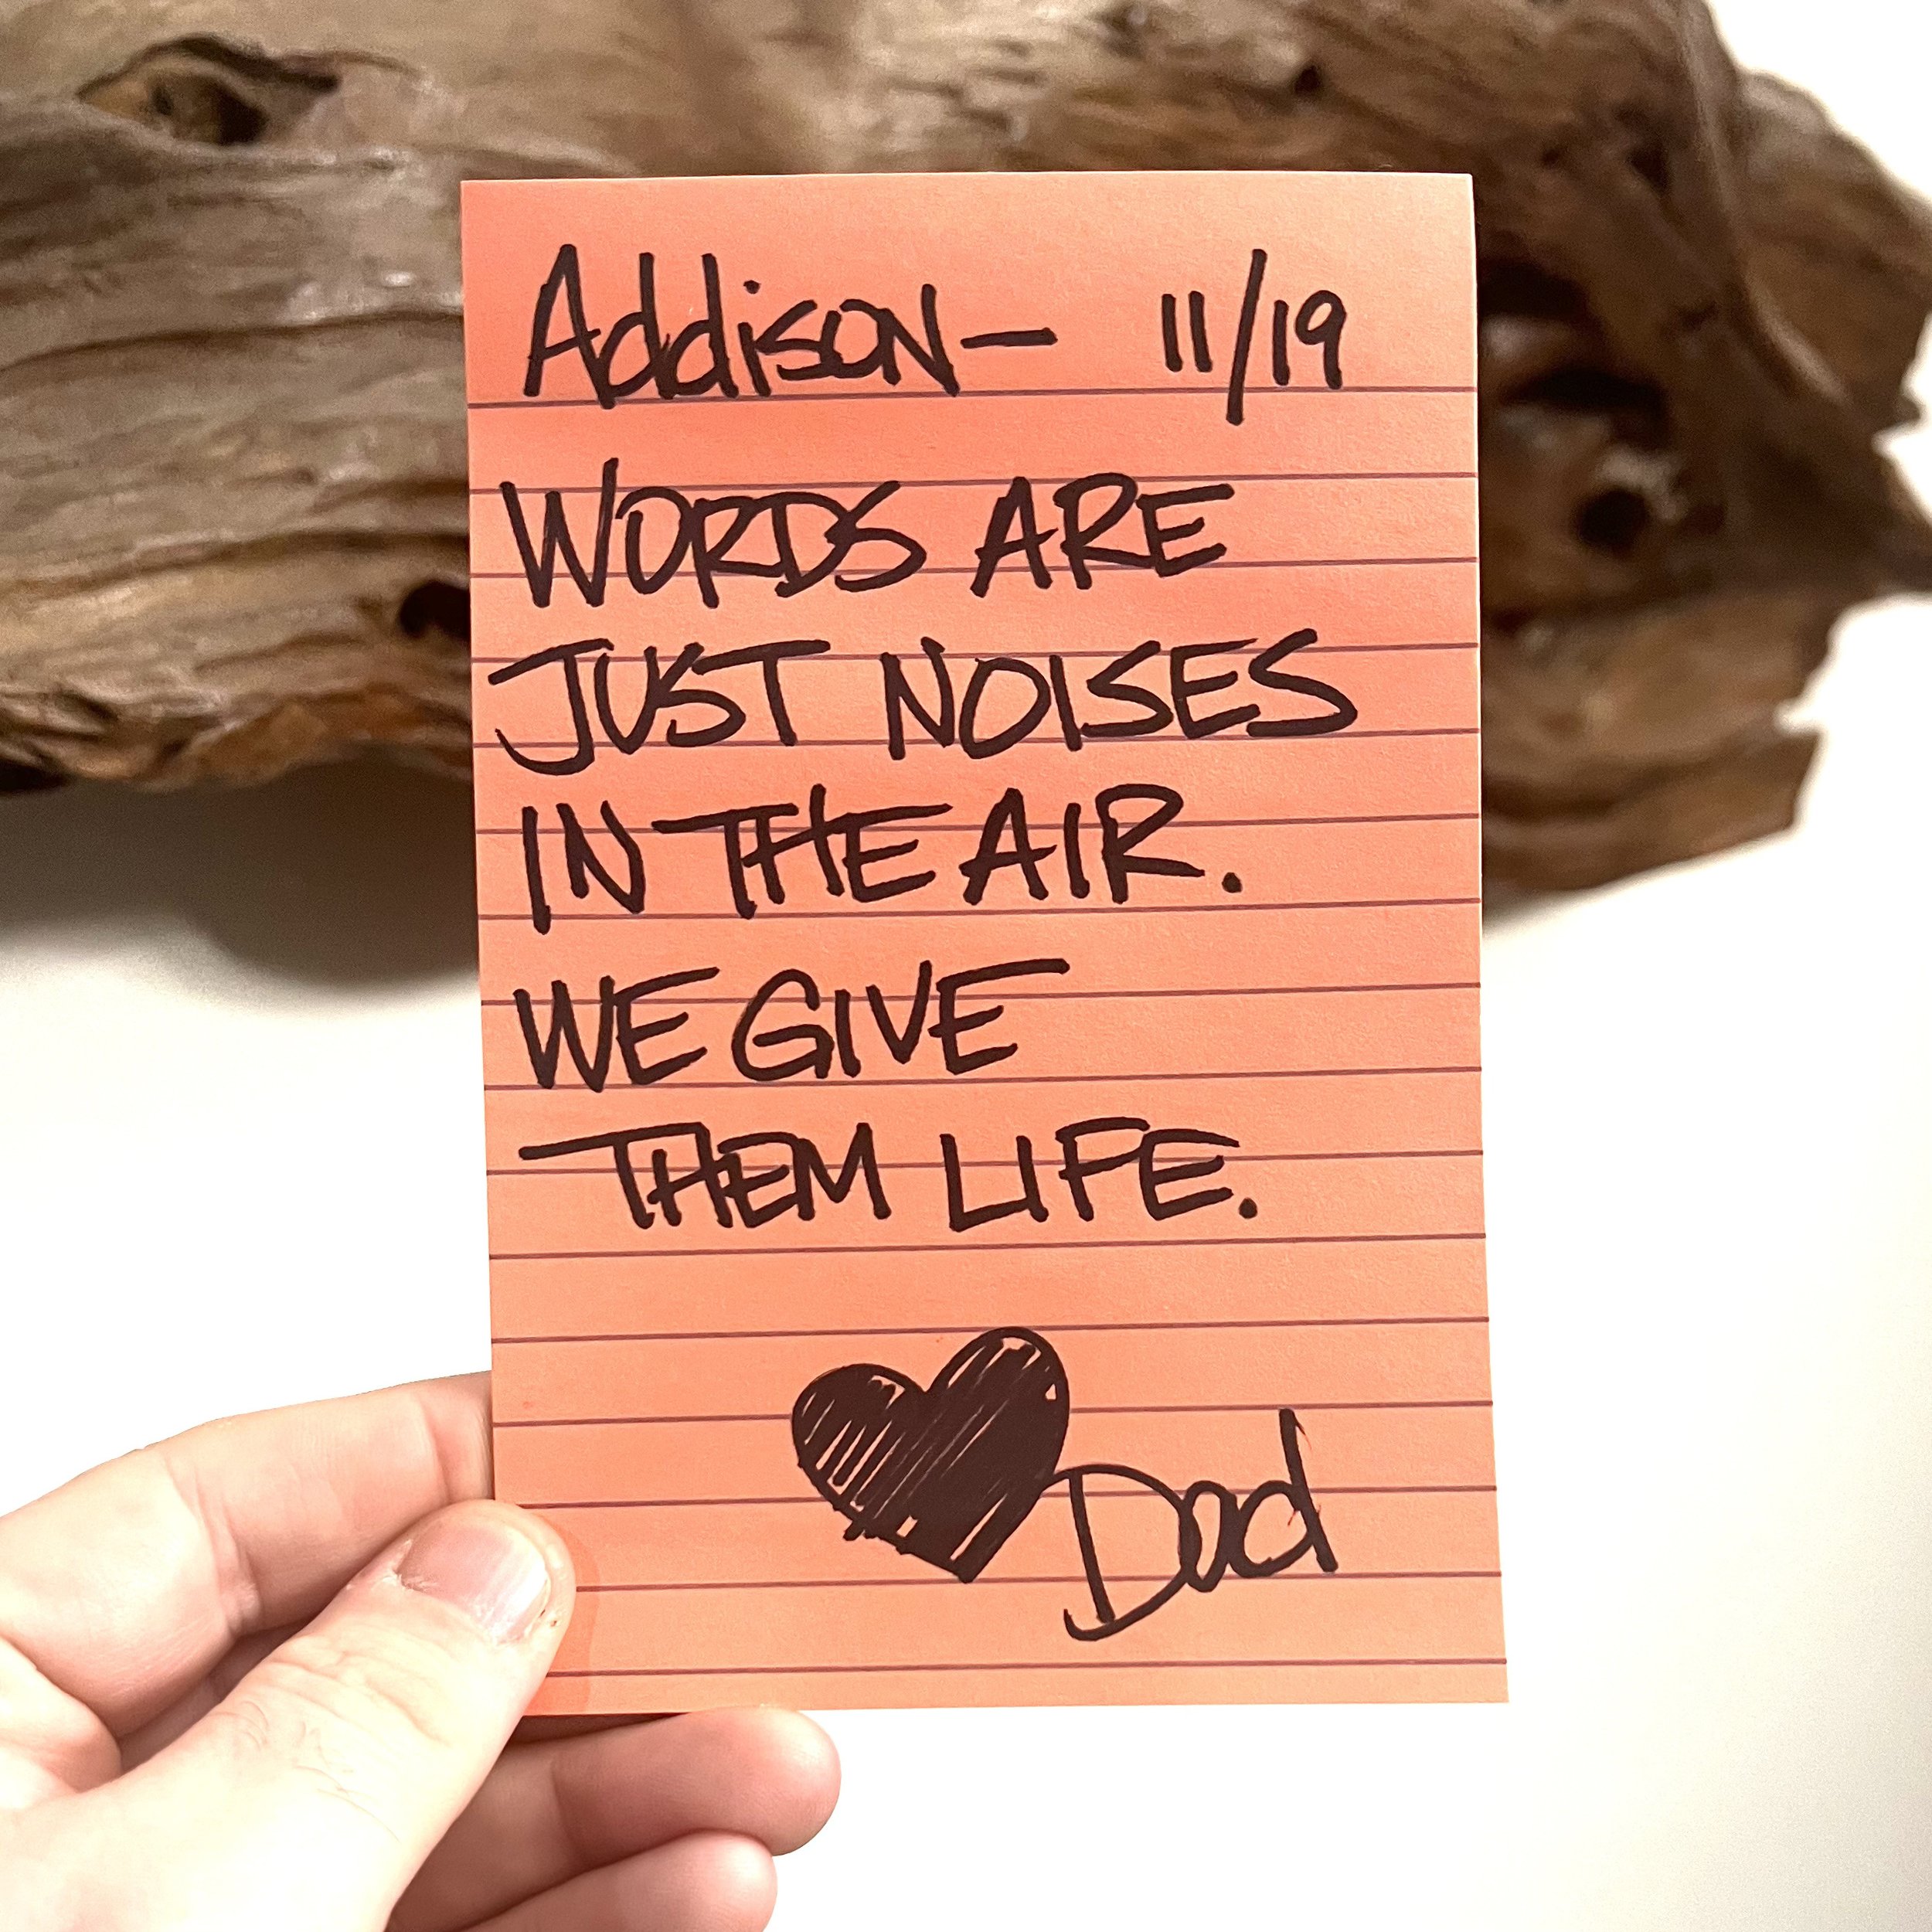 Addison— 11/19
WORDS ARE
JUST NOISES
IN THE AIR.
WE GIVE
THEM LIFE.
Dad